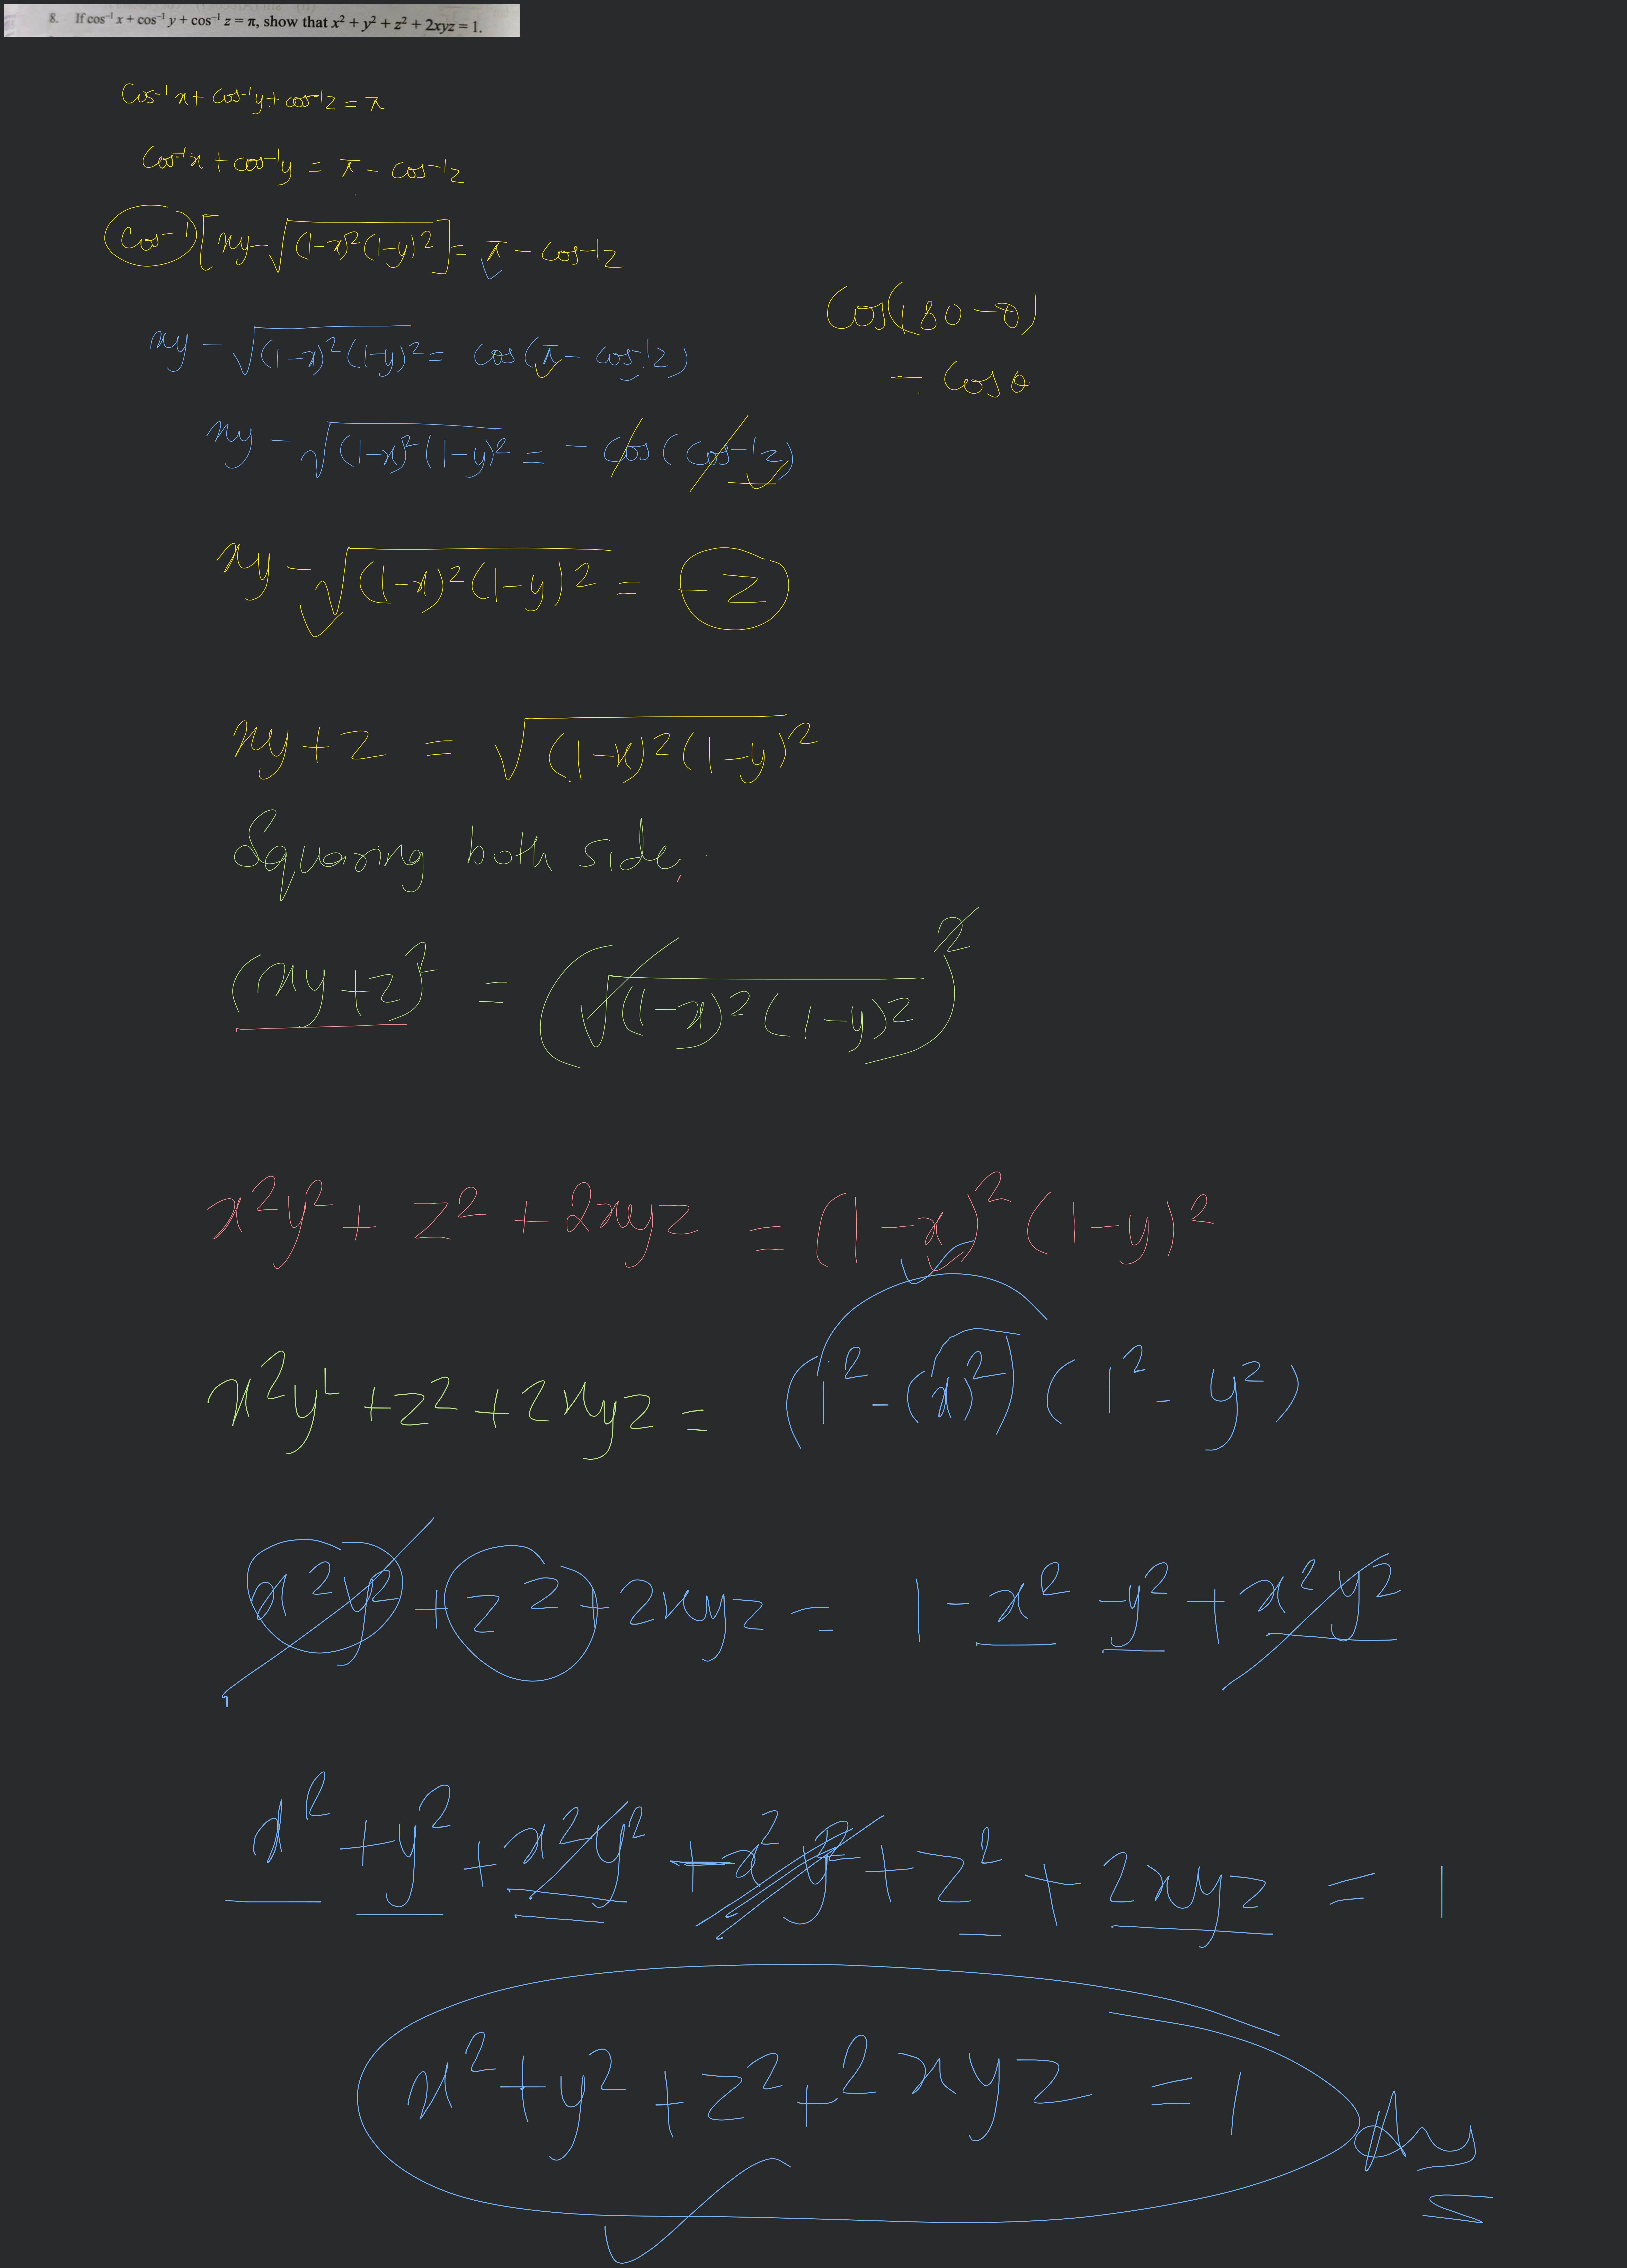 8. If cos⁻¹ x + cos⁻¹ y + cos⁻¹ z = π, show that x² + y² + z² + 2xyz = 1.
Cos⁻¹x + cos⁻¹y + cos⁻¹z = π
Cos⁻¹x + cos⁻¹y = π - cos⁻¹z
Cos⁻¹[xy - √((1-x)²(1-y)²)] = π - cos⁻¹z
Cos(180-θ)
xy - √((1-x)²(1-y)²) = cos(π - cos⁻¹z)
- Cosθ
xy - √((1-x)²(1-y)²) = - cos(cos⁻¹z)
xy - √((1-x)²(1-y)²) = -z
xy + z = √((1-x)²(1-y)²)
Squaring both side,
(xy+z)² = (√((1-x)²(1-y)²))²
x²y² + z² + 2xyz = (1-x)²(1-y)²
x²y² + z² + 2xyz = (1² - (x)²)(1² - y²)
x²y² + z² + 2xyz = 1 - x² - y² + x²y²
x² + y² + x²y² + x²y² + z² + 2xyz = 1
x² + y² + z² + 2xyz = 1